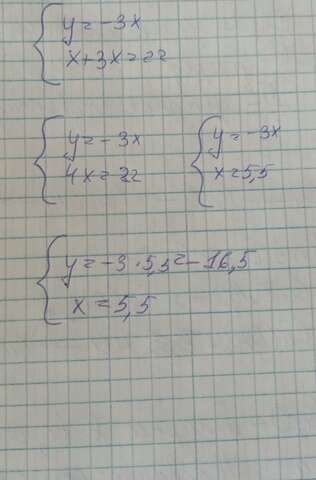 y = -3x
x+3x=22
y = -3x
4x=22
y = -3x
x=5,5
y = -3·5,5=-16,5
x = 5,5